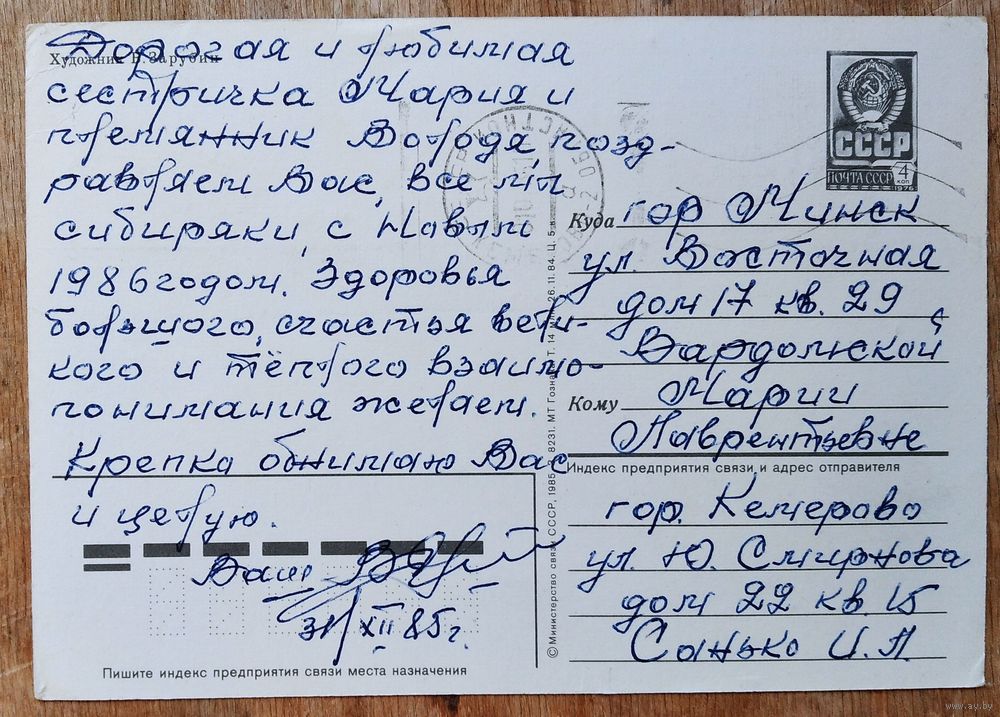 Художник В. Зарубин
Дорогая и любимая
сестричка Мария и
племянник Володя, позд-
равляем Вас, все мы
сибиряки, с Новым
1986 годом. Здоровья
большого, счастья вели-
кого и тёплого взаимо-
понимания желаем.
Крепко обнимаю Вас
и целую.
Ваш
31/XII 85 г.
Пишите индекс предприятия связи места назначения
© Министерство связи СССР, 1985. 8231. МТ Гознака. 26.11.84. Ц. 5 к.
СССР
ПОЧТА СССР 4 КОП
1976
Куда гор Минск
ул. Восточная
дом 17 кв. 29
Вардомской
Кому Марии
Лаврентьевне
Индекс предприятия связи и адрес отправителя
гор. Кемерово
ул. Ю. Смирнова
дом 22 кв. 15
Санько И. Л.
www.ay.by